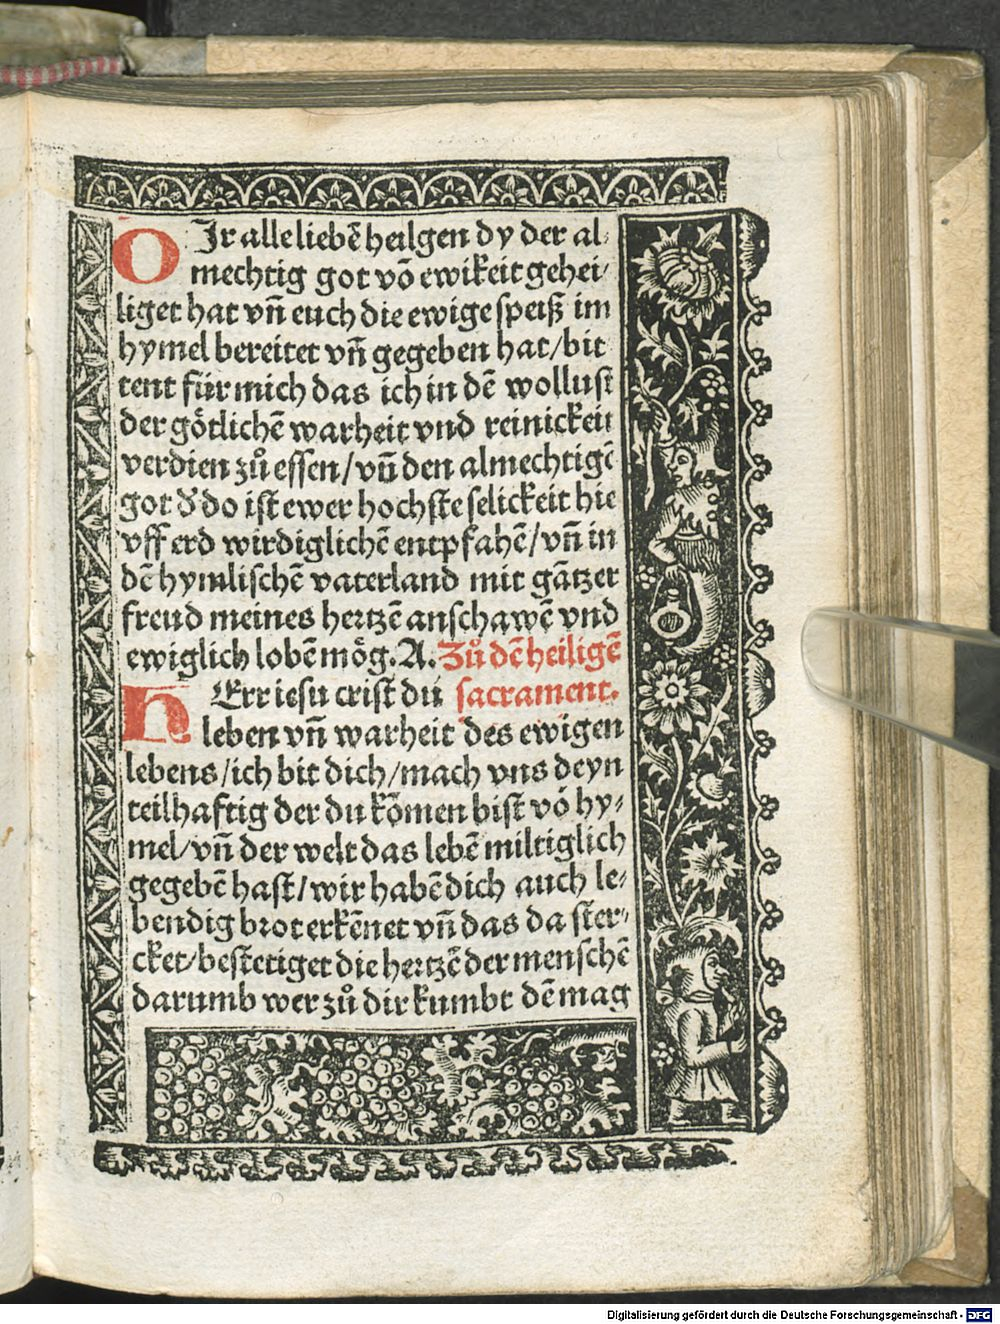 O Jr alle liebē heilgen dy der al-
mechtig got vō ewikeit gehei-
liget hat vn̄ euch die ewige speiß im
hymel bereitet vn̄ gegeben hat/bit
tent für mich das ich in dē wollust
der götlichē warheit vnd reinickeit
verdien zů essen/vn̄ den almechtigē
got d̕ do ist ewer hochste selickeit hie
vff erd wirdiglichē entpfahē/vn̄ in
dē hymlischē vaterland mit gātzer
freud meines hertzē anschawē vnd
ewiglich lobē mög. A. Zů dē heiligē
HErr iesu crist du sacrament.
leben vn̄ warheit des ewigen
lebens/ich bit dich/mach vns deyn
teilhaftig der du kōmen bist vō hy-
mel/vn̄ der welt das lebē miltiglich
gegebē hast/wir habē dich auch le-
bendig brot erkēnet vn̄ das da ster-
cket/bestetiget die hertzē der menschē
darumb wer zů dir kumbt dē mag
Digitalisierung gefördert durch die Deutsche Forschungsgemeinschaft - DFG